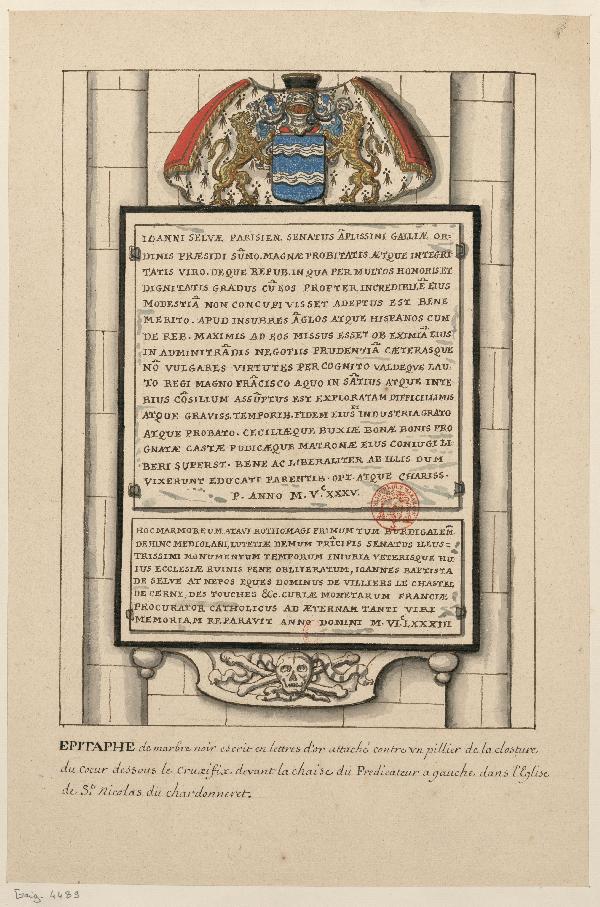 IOANNI SELVÆ PARISIEN. SENATUS ÃPLISSINI GALLIÆ OR-
DINIS PRÆSIDI SŨMO. MAGNÆ PROBITATIS ÆTQUE INTEGRI
TATIS VIRO. DEQUE REPUB. IN QUA PER MULTOS HONORIS ET
DIGNITATIS GRADUS CŨ EOS PROPTER INCREDIBILẼ EIUS
MODESTIÃ NON CONCUPIVISSET ADEPTUS EST BENE
MERITO. APUD INSUBRES ÃGLOS ATQUE HISPANOS CUM
DE REB. MAXIMIS AD EOS MISSUS ESSET OB EXIMIÃ EIUS
IN ADMINITRÃDIS NEGOTIIS PRUDENTIÃ CÆTERASQUE
NÕ VULGARES VIRTUTES PERCOGNITO VALDEQUE LAU-
TO REGI MAGNO FRÃCISCO A QUO IN SÃTIUS ATQUE INTE
RIUS CÕSILIUM ASSŨPTUS EST EXPLORATAM DIFFICILLIMIS
ATQUE GRAVISS. TEMPORIB. FIDEM EIUS ET INDUSTRIA GRATO
ATQUE PROBATO. CECILIÆQUE BUXIÆ BONÆ BONIS PRO
GNATÆ CASTÆ PUDICÆQUE MATRONÆ EIUS CONIUGI LI
BERI SUPERST. BENE AC LIBERALITER AB ILLIS DUM
VIXERUNT EDUCATI PARENTIB. OPT. ATQUE CHARISS.
P. ANNO M. Vᶜ XXXV.
HOC MARMOREUM, ATAVI ROTHOMAGI PRIMUM TUM BURDIGALEÑ.
DEHINC MEDIOLANI, LUTETIÆ DEMUM PRĨCIPIS SENATUS ILLUS-
TRISSIMI MONUMENTUM TEMPORUM INIURIA VETERISQUE HU
IUS ECCLESIÆ RUINIS PENE OBLITERATUM, IOANNES BAPTISTA
DE SELVE AT NEPOS EQUES DOMINUS DE VILLIERS LE CHASTEL
DE CERNY, DES TOUCHES &c. CURIÆ MONETARUM FRANCIÆ
PROCURATOR CATHOLICUS AD ÆTERNAM TANTI VIRI
MEMORIAM REPARAVIT ANNO DOMINI M. VI.ᶜ LXXXIII
EPITAPHE de marbre noir escrit en lettres d'or attaché contre vn pillier de la closture
du cœur dessous le Cruxifix devant la chaise du Predicateur a gauche dans l'Eglise
de St. Nicolas du chardonneret.
Gaig. 4489